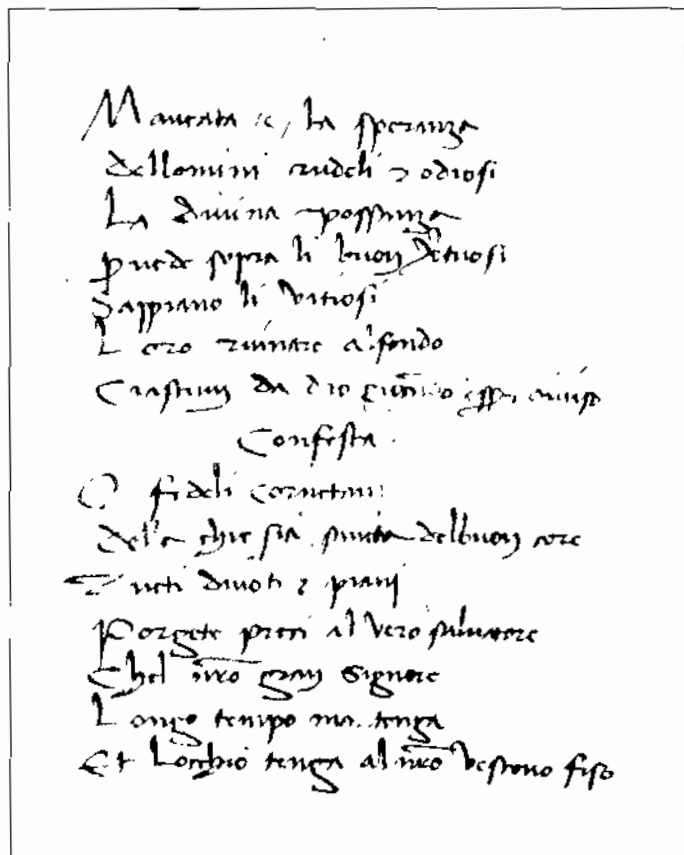 Mancata e, la speranza
dellomini crudeli & odiosi
La divina possanza
Puede sopra li buon
Sappiano li vitiosi
Loro ruinare alfondo
Ciaschun da dio
Confesta
O fideli cornetani
della chiesia del buon core
Tucti divoti & piani
Porgete preci al vero salvatore
Chel nro gran Signore
Longo tempo tenga
Et Locchio tenga al nro vescovo fiso